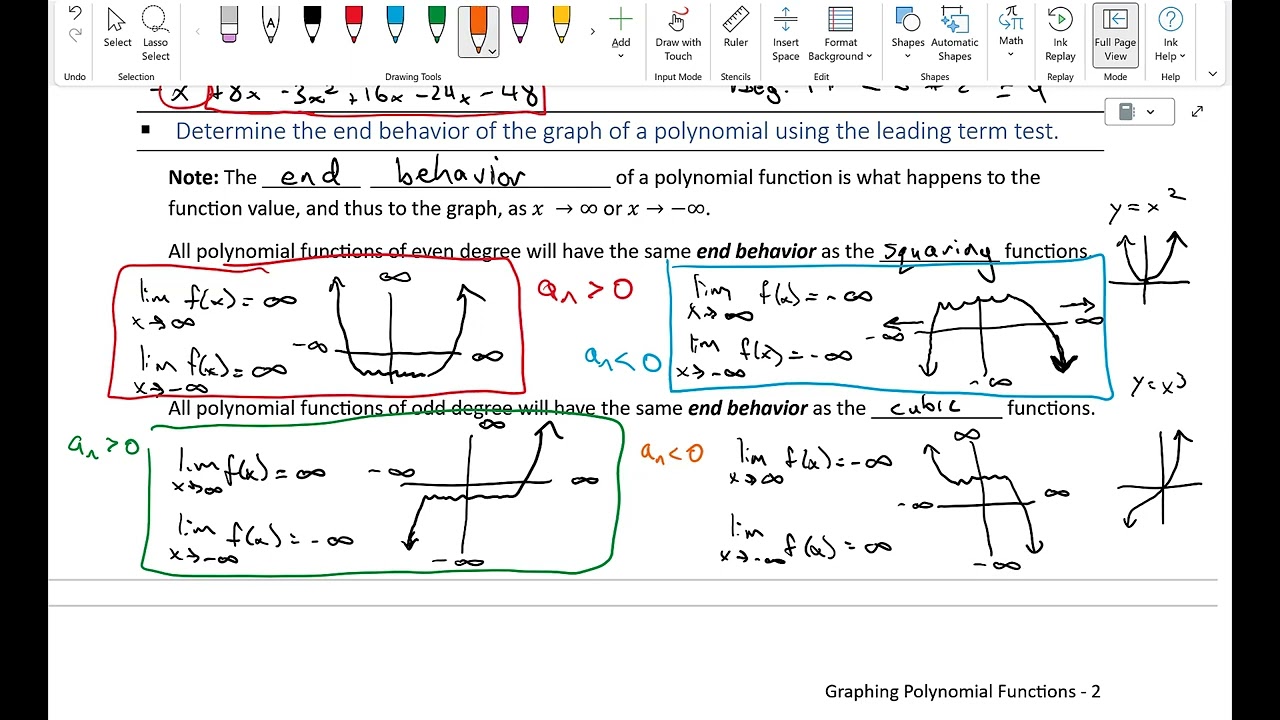 Undo
Select
Lasso Select
Selection
Drawing Tools
Add
Draw with Touch
Input Mode
Ruler
Stencils
Insert Space
Format Background
Edit
Shapes
Automatic Shapes
Shapes
Math
Math
Ink Replay
Replay
Full Page View
Mode
Ink Help
Help
+8x -3x² +16x -24x -48
▪ Determine the end behavior of the graph of a polynomial using the leading term test.
Note: The end behavior of a polynomial function is what happens to the
function value, and thus to the graph, as x → ∞ or x → −∞.
y = x²
All polynomial functions of even degree will have the same end behavior as the squaring functions.
lim f(x) = ∞
x→∞
lim f(x) = ∞
x→-∞
∞
-∞ ∞
aₙ > 0
aₙ < 0
lim f(x) = -∞
x→∞
lim f(x) = -∞
x→-∞
-∞ ∞
-∞
y = x³
All polynomial functions of odd degree will have the same end behavior as the cubic functions.
aₙ > 0
lim f(x) = ∞
x→∞
lim f(x) = -∞
x→-∞
∞
-∞ ∞
-∞
aₙ < 0
lim f(x) = -∞
x→∞
lim f(x) = ∞
x→-∞
∞
-∞ ∞
-∞
Graphing Polynomial Functions - 2